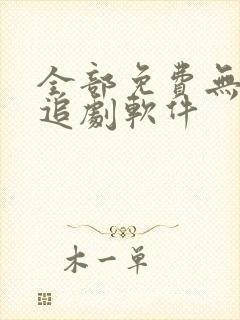 全部免費無
追劇軟件
木一單